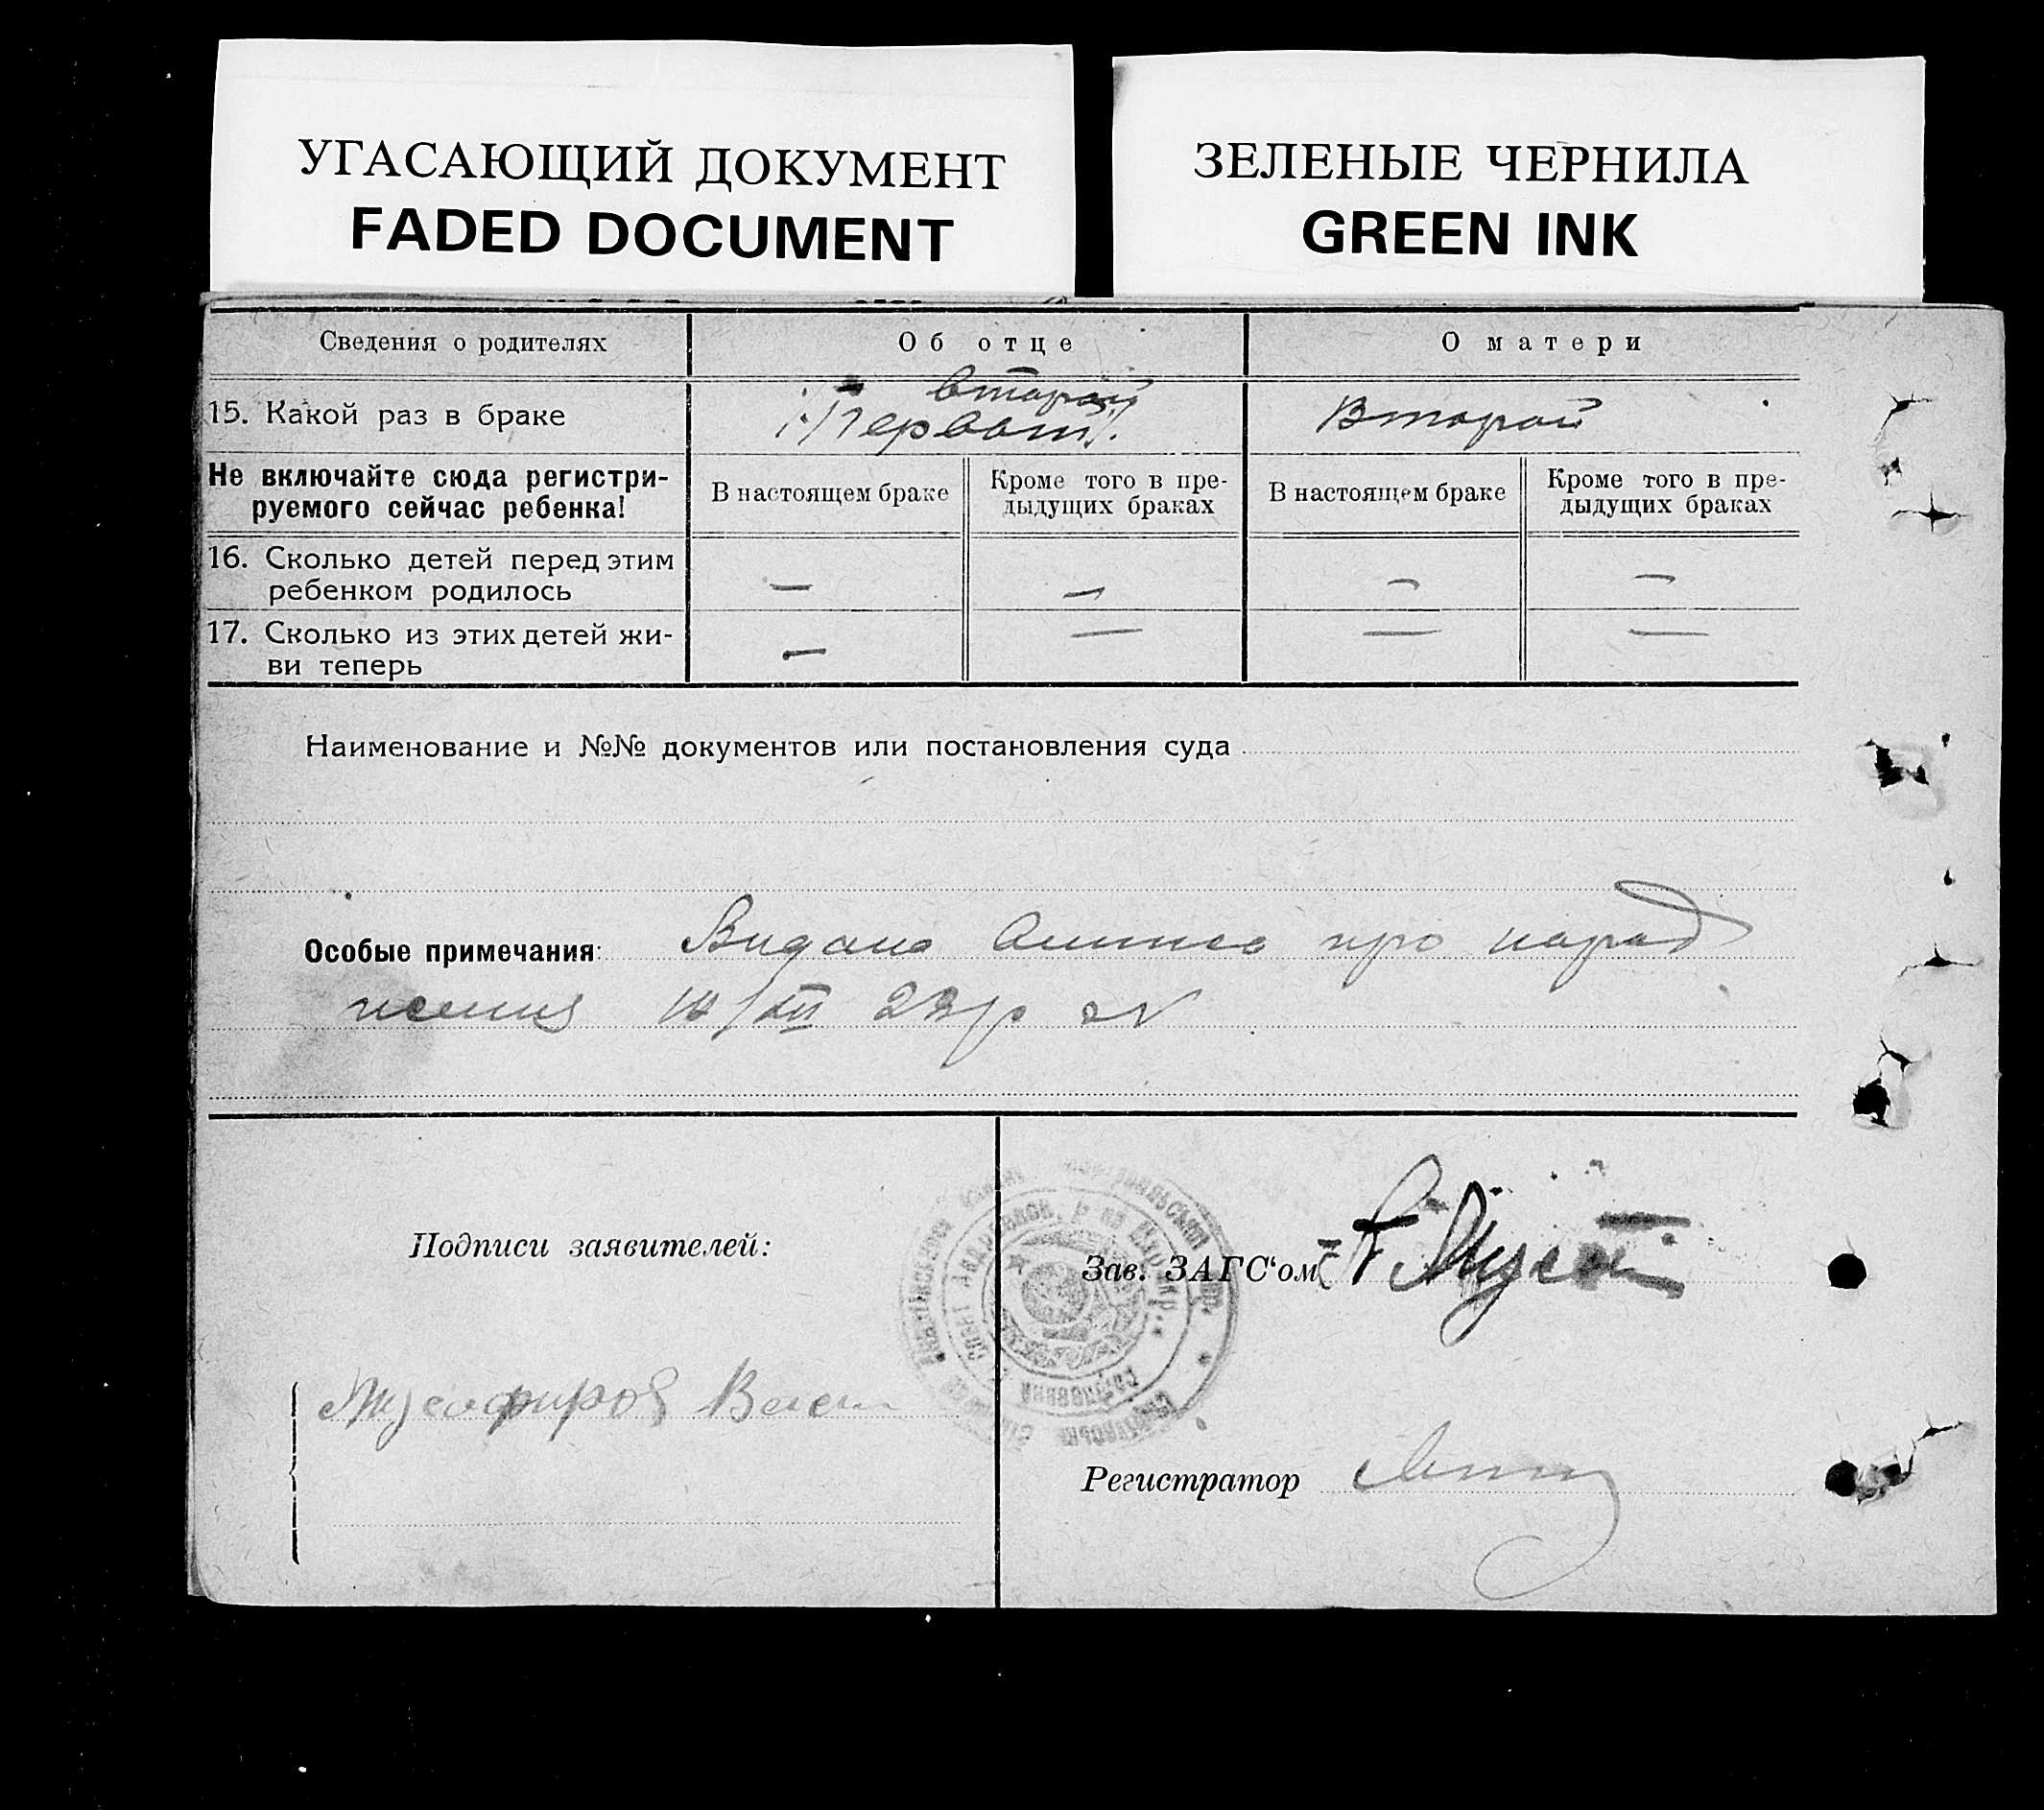 УГАСАЮЩИЙ ДОКУМЕНТ
FADED DOCUMENT
ЗЕЛЕНЫЕ ЧЕРНИЛА
GREEN INK
Сведения о родителях
Об отце
О матери
15. Какой раз в браке
второй
Первый
Второй
Не включайте сюда регистри-
руемого сейчас ребенка!
В настоящем браке
Кроме того в пре-
дыдущих браках
В настоящем браке
Кроме того в пре-
дыдущих браках
16. Сколько детей перед этим
ребенком родилось
— — — —
17. Сколько из этих детей жи-
ви теперь
— — — —
Наименование и №№ документов или постановления суда
Особые примечания: Видана про народ
ження
Подписи заявителей:
Зав. ЗАГС‘ом
Регистратор